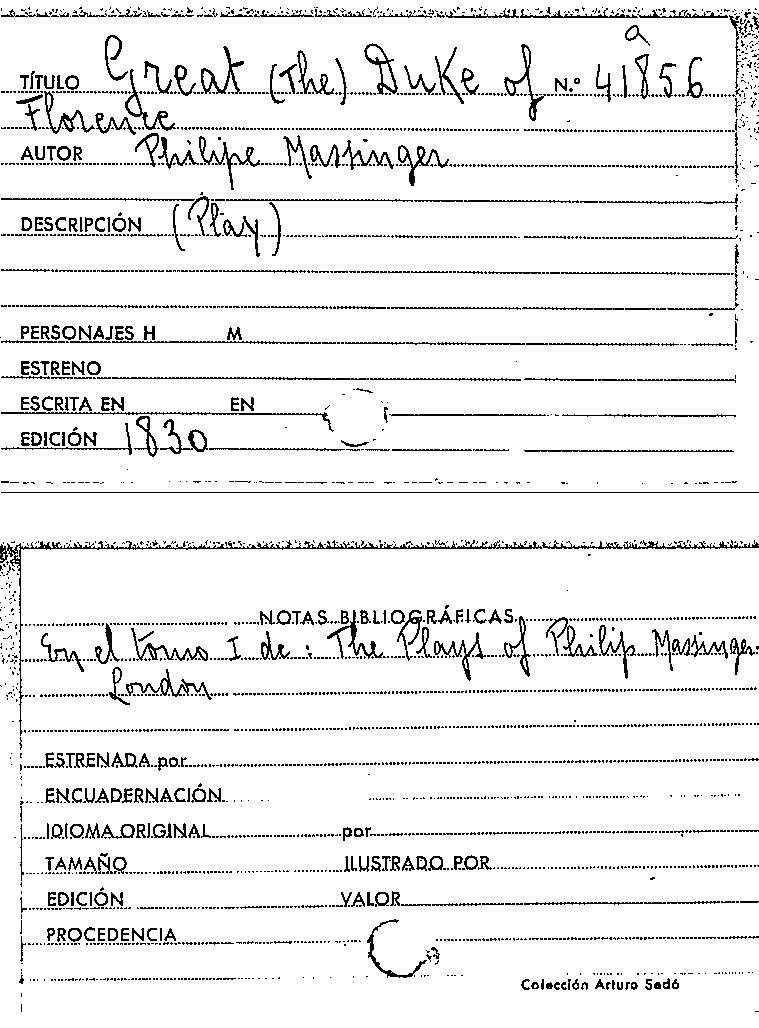 a
TÍTULO Great (The) Duke of N.º 41856
Florence
AUTOR Philipe Massinger
DESCRIPCIÓN (Play)
PERSONAJES H M
ESTRENO
ESCRITA EN EN
EDICIÓN 1830
NOTAS BIBLIOGRÁFICAS
En el tomo I de: The Plays of Philip Massinger.
London
ESTRENADA por
ENCUADERNACIÓN
IDIOMA ORIGINAL por
TAMAÑO ILUSTRADO POR
EDICIÓN VALOR
PROCEDENCIA
Colección Arturo Sedó